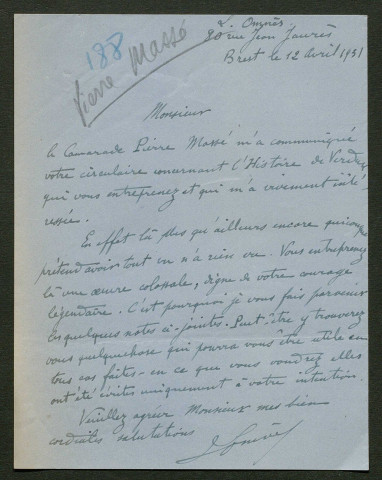 188
Pierre Massé
L. Onfrès
80 rue Jean Jaurès
Brest le 12 Avril 1931
Monsieur
le Camarade Pierre Massé m'a communiqué
votre circulaire concernant l'Histoire de Verdun
que vous entreprenez et qui m'a vivement inté-
ressée.
En effet là plus qu'ailleurs encore quiconque
prétend avoir tout vu n'a rien vu. Vous entreprenez
là une œuvre colossale, digne de votre courage
légendaire. C'est pourquoi je vous fais parvenir
les quelques notes ci-jointes. Peut-être y trouverez
vous quelquechose qui pourra vous être utile en
tous cas faites-en ce que vous voudrez elles
ont été écrites uniquement à votre intention
Veuillez agréer Monsieur mes bien
cordiales salutations